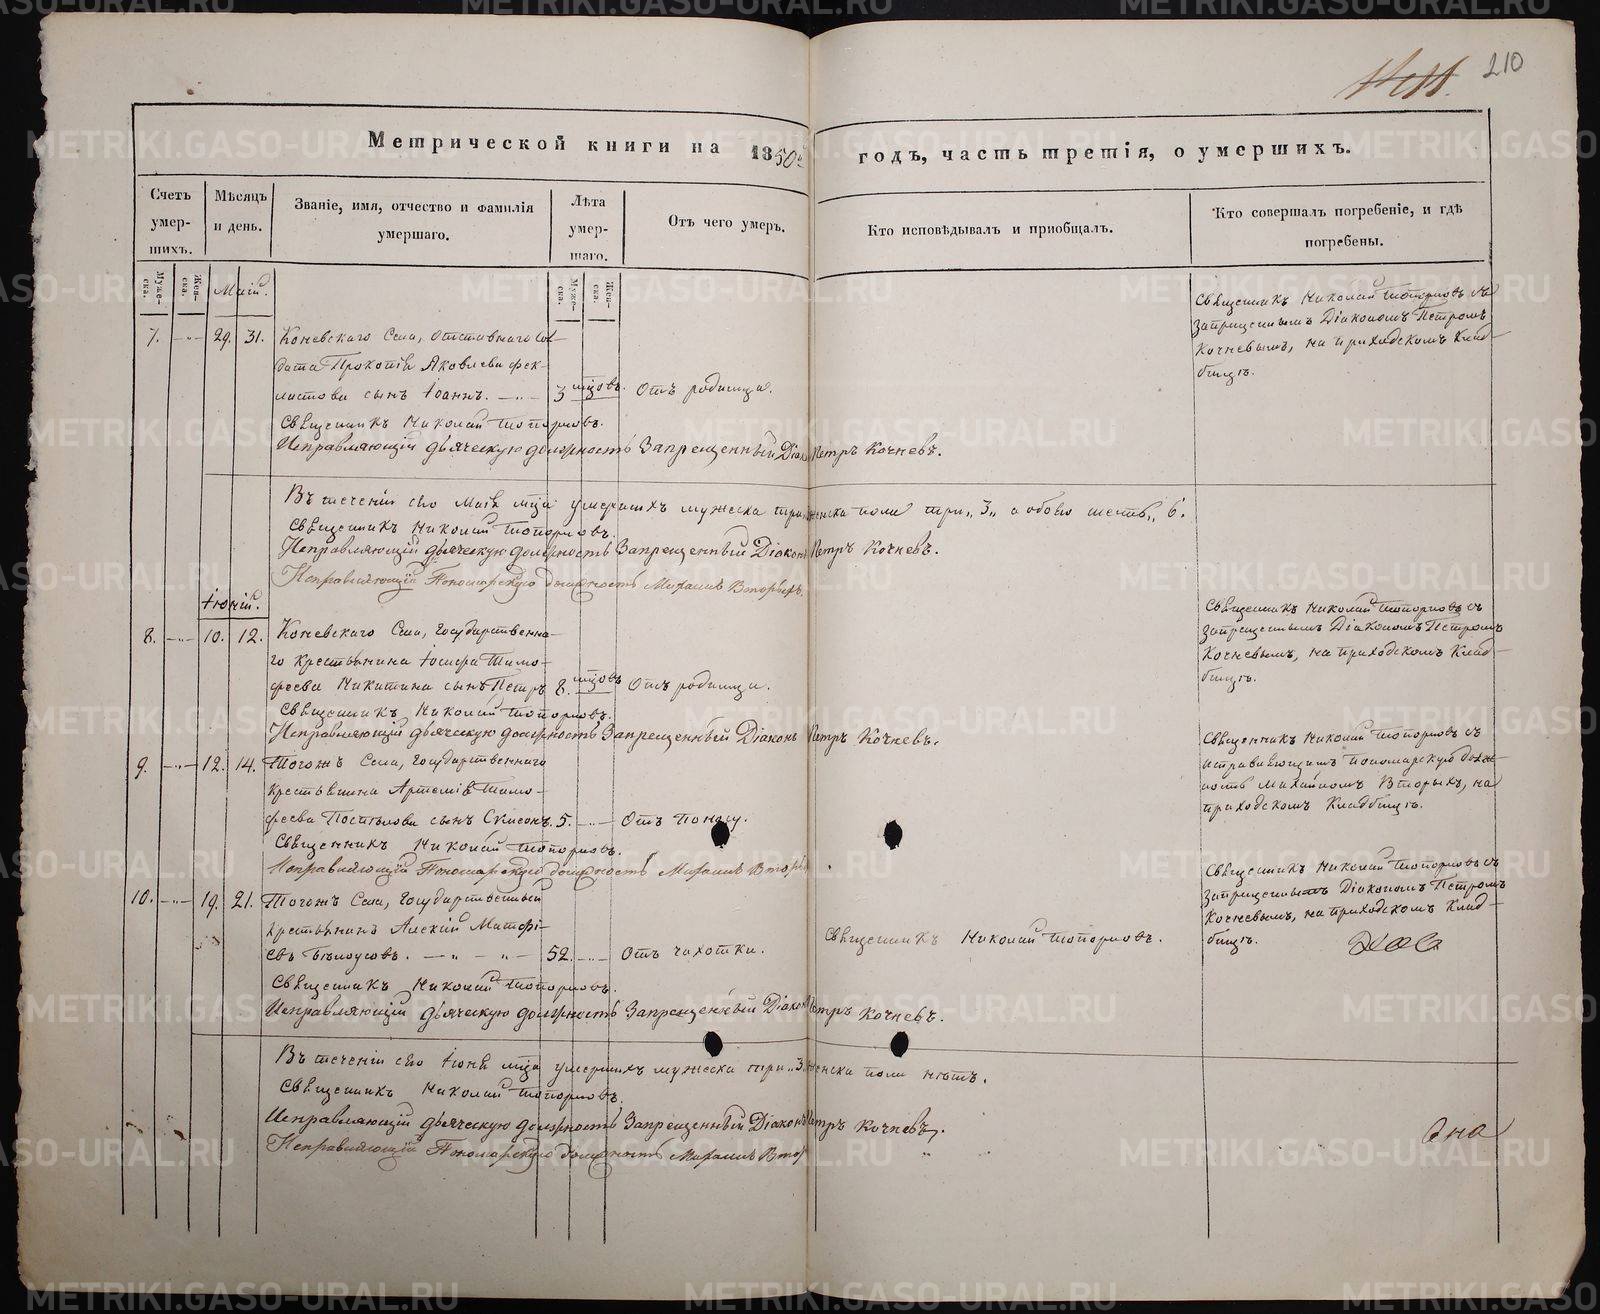 210
Метрической книги на 1850й годъ, часть третія, о умершихъ.
Счетъ умер-шихъ.
Мѣсяцъ и день.
Званіе, имя, отчество и фамилія умершаго.
Лѣта умер-шаго.
Отъ чего умеръ.
Кто исповѣдывалъ и приобщалъ.
Кто совершалъ погребеніе, и гдѣ погребены.
Муже-ска.
Жен-ска.
Муже-ска.
Жен-ска.
Маій.
7. —„— 29. 31. Коневскаго Села, отставнаго Сол-
дата Прокопія Яковлева Фек-
листова сынъ Іоаннъ. —„— 3 мцовъ. Отъ родимца.
Священникъ Николай Топорковъ съ
запрещеннымъ Діакономъ Петромъ
Кочневымъ, на приходскомъ Клад-
бищѣ.
Священникъ Николай Топорковъ.
Исправляющій дьяческую должность Запрещенный Діаконъ Петръ Кочневъ.
Въ теченіи сего Маія мца умершихъ мужеска три, женска пола три „3„ а обоего шесть „6.
Священникъ Николай Топорковъ.
Исправляющій дьяческую должность Запрещенный Діаконъ Петръ Кочневъ.
Исправляющій Пономарскую должность Михаилъ Вторыхъ.
Іюній.
8. —„— 10. 12. Коневскаго Села, Государственна-
го крестьянина Іосифа Тимо-
феева Никитина сынъ Петръ 8. мцовъ Отъ родимца.
Священникъ Николай Топорковъ съ
запрещеннымъ Діакономъ Петромъ
Кочневымъ, на приходскомъ Клад-
бищѣ.
Священникъ Николай Топорковъ.
Исправляющій дьяческую должность Запрещенный Діаконъ Петръ Кочневъ.
9. —„— 12. 14. Тогожъ Села, Государственнаго
крестьянина Артемія Тимо-
феева Поспѣлова сынъ Симеонъ. 5. —„— Отъ поносу.
Священникъ Николай Топорковъ съ
исправляющимъ пономарскую долж-
ность Михаиломъ Вторыхъ, на
приходскомъ Кладбищѣ.
Священникъ Николай Топорковъ.
Исправляющій Пономарскую должность Михаилъ Вторы
10. —„— 19. 21. Тогожъ Села, Государственный
крестьянинъ Алексій Матфі-
евъ Бѣлоусовъ. —„—„— 52. —„— Отъ чахотки.
Священникъ Николай Топорковъ.
Священникъ Николай Топорковъ съ
запрещеннымъ Діакономъ Петромъ
Кочневымъ, на приходскомъ Клад-
бищѣ.
Священникъ Николай Топорковъ.
Исправляющій дьяческую должность Запрещенный Діаконъ Петръ Кочневъ.
Въ теченіи сего Іюня мца умершихъ мужеска три „3. женска пола нѣтъ.
Священникъ Николай Топорковъ.
Исправляющій дьяческую должность Запрещенный Діаконъ Петръ Кочневъ.
Исправляющій Пономарскую должность Михаилъ Втор
METRIKI.GASO-URAL.RU